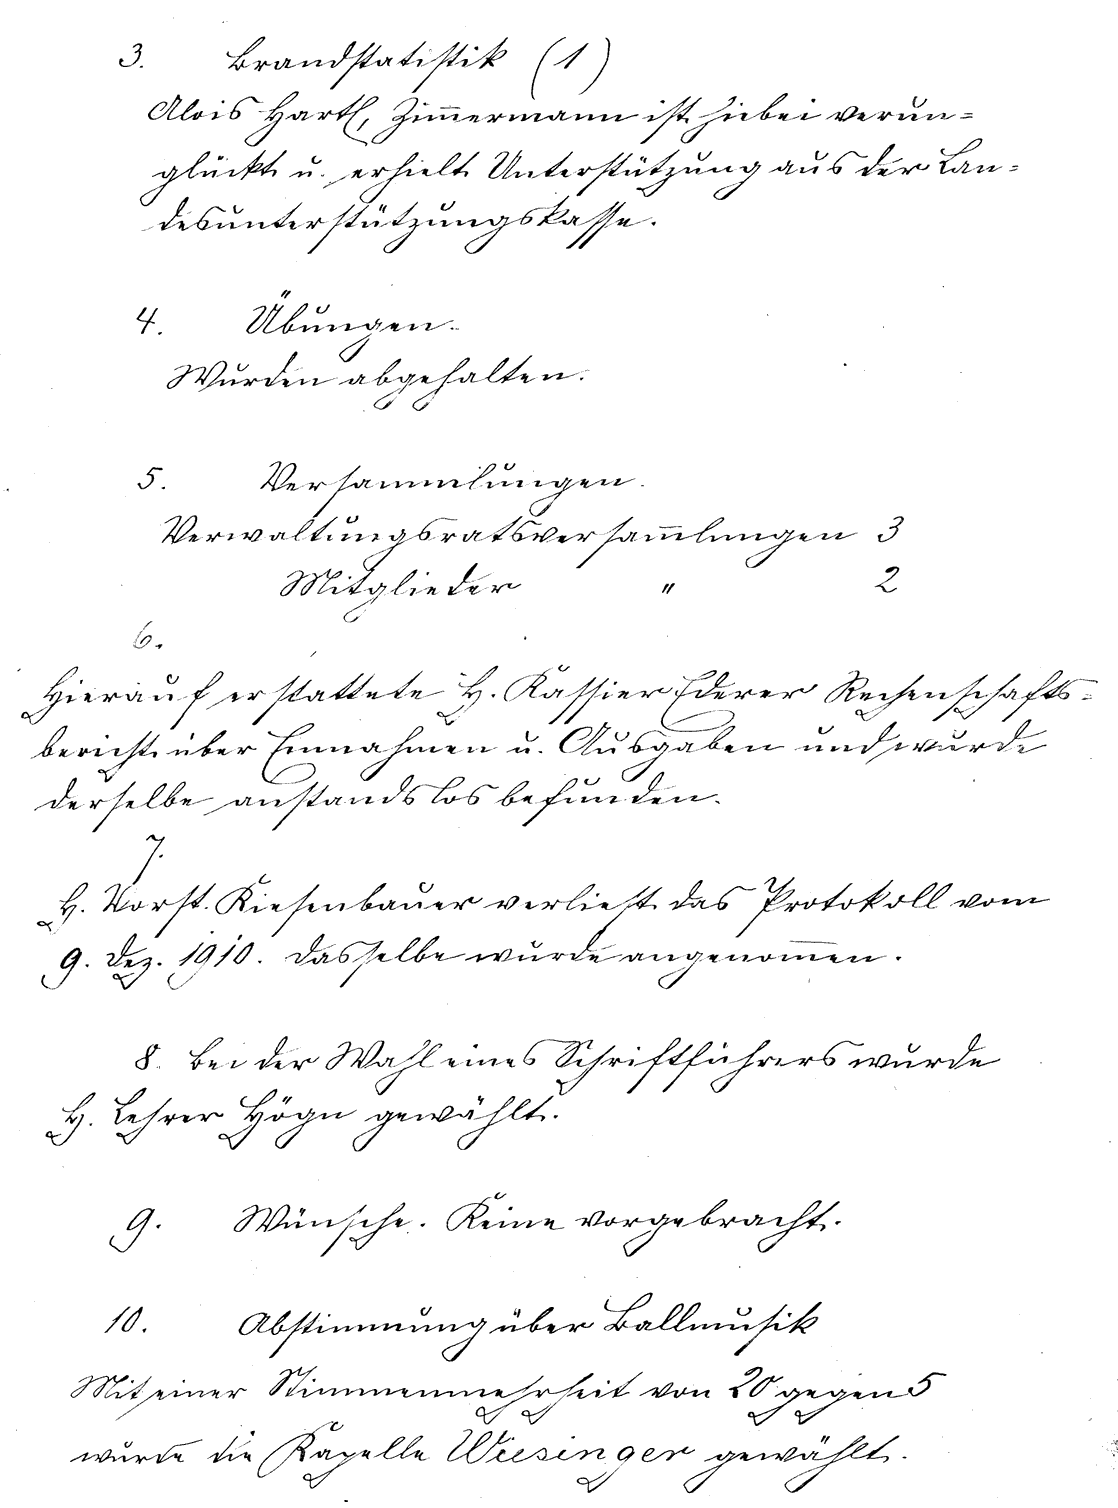 3. Brandstatistik (1)
Alois Hartl, Zim̅ermann ist hiebei verun=
glückt u. erhielt Unterstützung aus der Lan=
desunterstützungskasse.
4. Übungen.
Wurden abgehalten.
5. Versammlungen.
Verwaltungsratsversam̅lungen 3
Mitglieder " 2
6.
Hierauf erstattete H. Kassier Ederer Rechenschafts=
bericht über Einnahmen u. Ausgaben und wurde
derselbe anstandslos befunden.
7.
H. Vorst. Kiesenbauer verließt das Protokoll vom
9. Dez. 1910. Dasselbe wurde angenom̅en.
8. Bei der Wahl eines Schriftführers wurde
H. Lehrer Högn gewählt.
9. Wünsche. Keine vorgebracht.
10. Abstimmung über Ballmusik
Mit einer Stimmenmehrheit von 20 gegen 5
wurde die Kapelle Wiesinger gewählt.